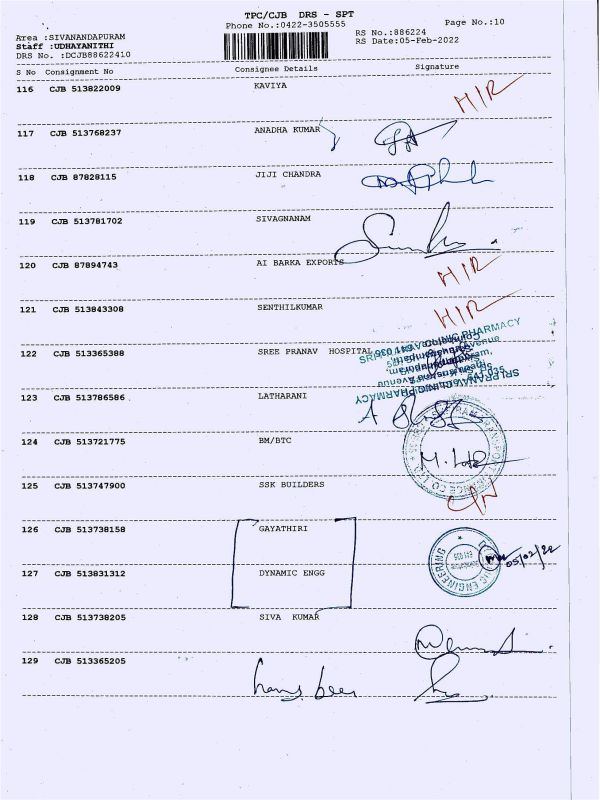 TPC/CJB DRS - SPT
Phone No.:0422-3505555
Page No.:10
Area :SIVANANDAPURAM
Staff :UDHAYANITHI
DRS No. :DCJB88622410
RS No.:886224
RS Date:05-Feb-2022
S No Consignment No Consignee Details Signature
116 CJB 513822009 KAVIYA
117 CJB 513768237 ANADHA KUMAR
118 CJB 87828115 JIJI CHANDRA
119 CJB 513781702 SIVAGNANAM
120 CJB 87894743 AI BARKA EXPORTS
121 CJB 513843308 SENTHILKUMAR
122 CJB 513365388 SREE PRANAV HOSPITAL
123 CJB 513786586 LATHARANI
124 CJB 513721775 BM/BTC
125 CJB 513747900 SSK BUILDERS
126 CJB 513738158 GAYATHIRI
05/02/22
127 CJB 513831312 DYNAMIC ENGG
128 CJB 513738205 SIVA KUMAR
129 CJB 513365205